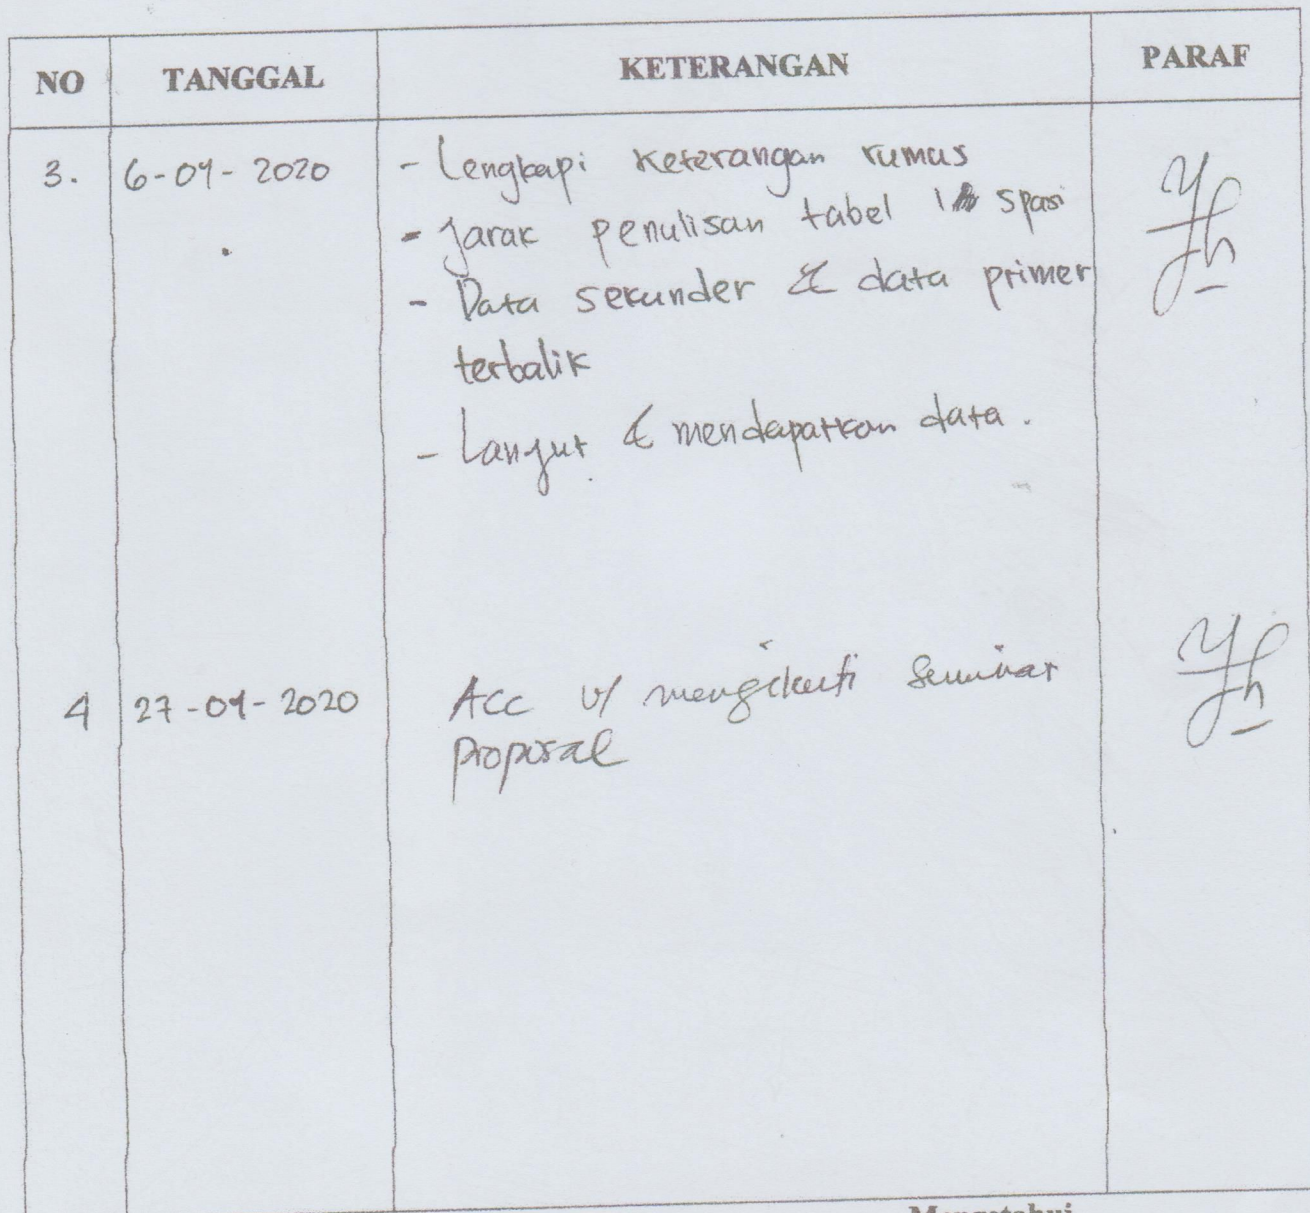 NO TANGGAL KETERANGAN PARAF
3. 6-04-2020 - Lengkapi keterangan rumus
- Jarak penulisan tabel 1 spasi
- Data sekunder & data primer
terbalik
- Lanjut & mendapatkan data.
4 27-04-2020 Acc u/ mengikuti seminar
proposal
Mengetahui